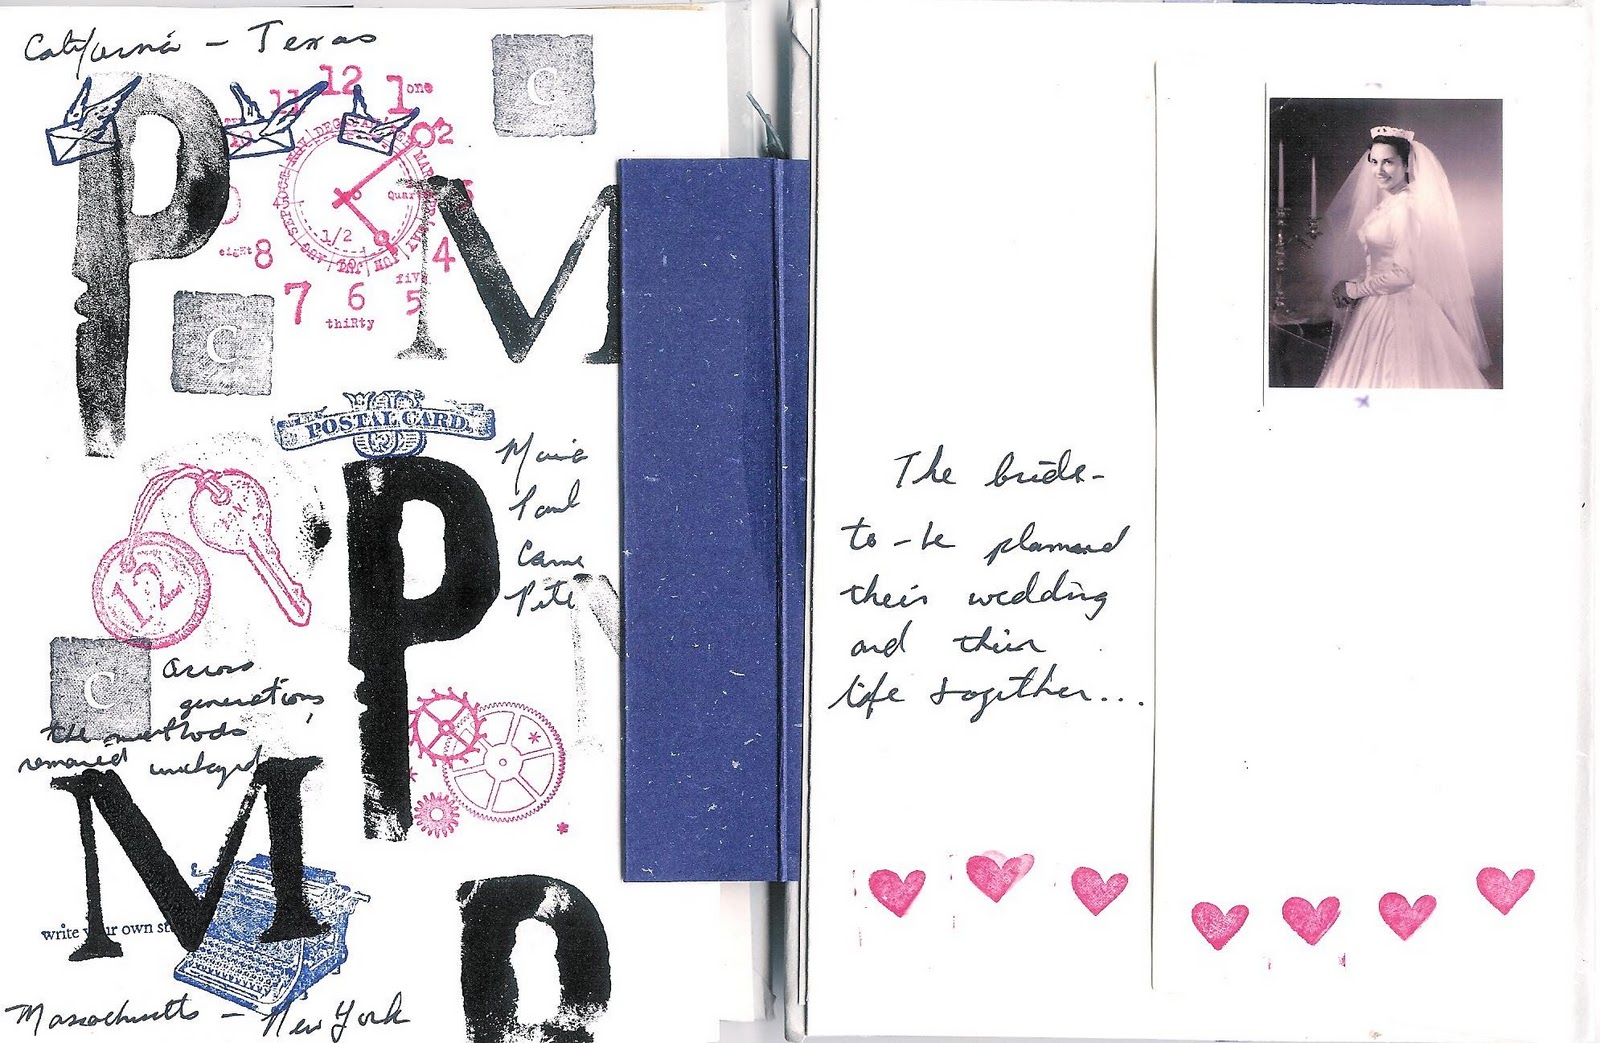 California - Texas
C
P
12
11
1 one
2
Quar
M
1/2
eight 8
4
five
7
6
5
thiRty
C
POSTAL CARD.
Marie
Paul
Came
Pete
P
12
C
across
generations,
the methods
remained unchanged
M
write your own
Massachusetts - New York
The bride-
to-be planned
their wedding
and their
life together...